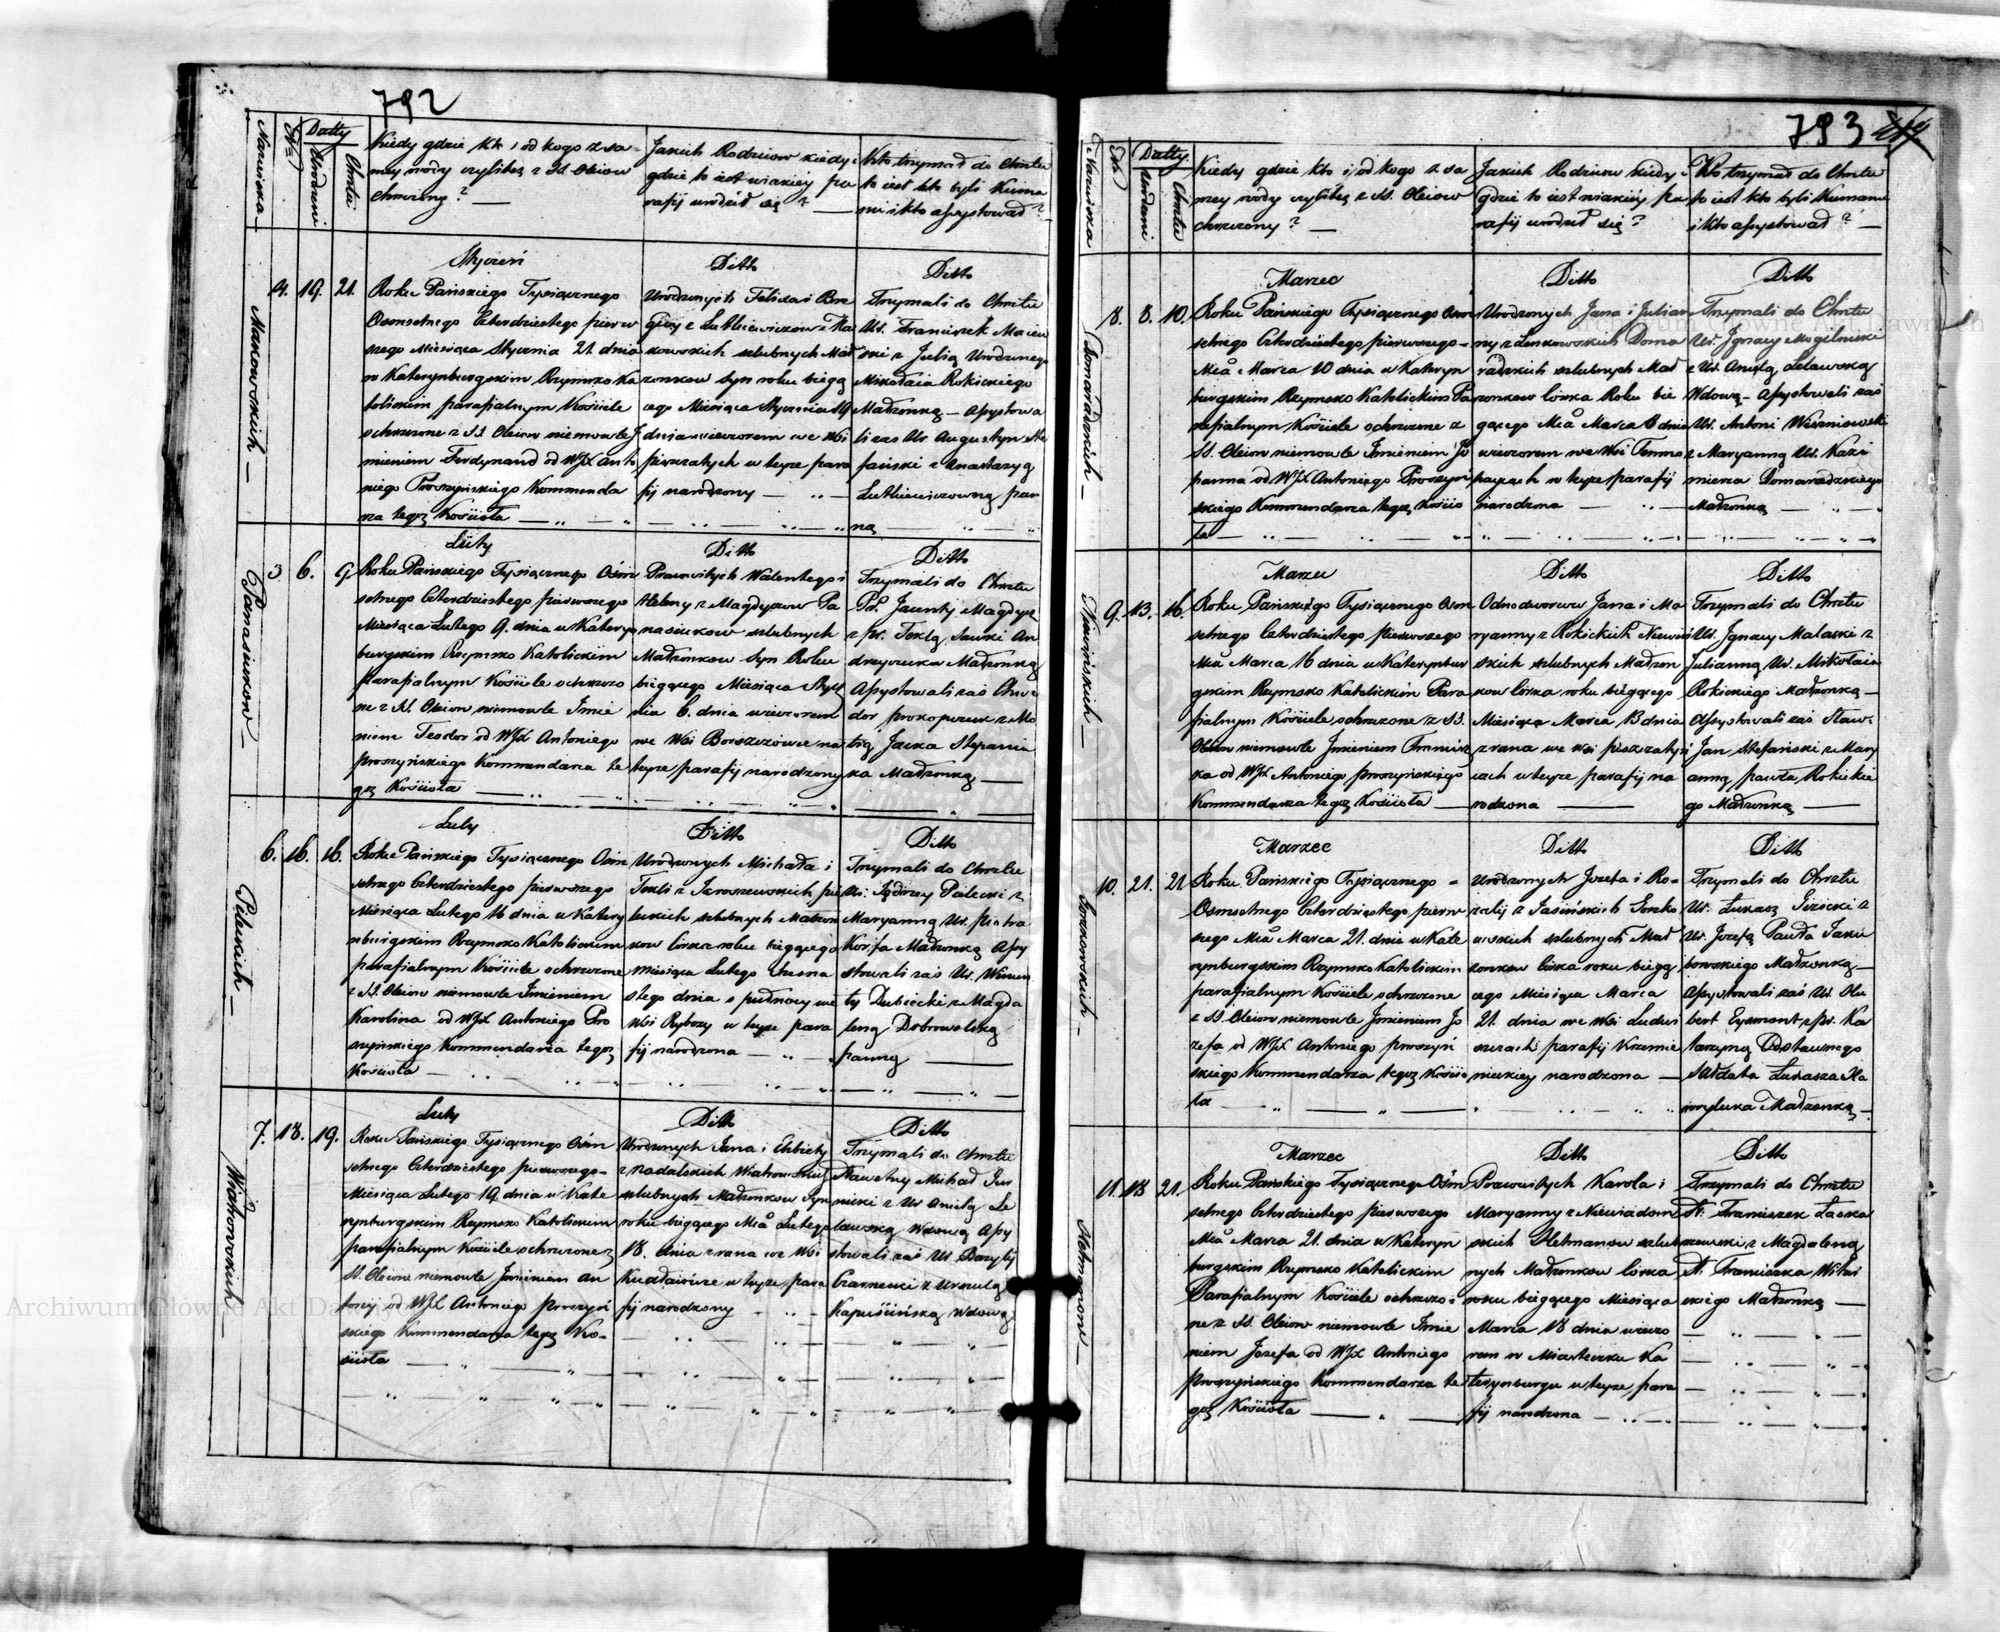 792
Nazwiska
Datty
Urodzeni
Chrztu
Kiedy gdzie kto i od kogo z sa-
mey wody czyliteż z SS. Oleiow
chrzczony? —
Jakich Rodzicow kiedy i
gdzie to iest w iakiey pa
rafij urodził się? —
Kto trzymał do Chrztu
to iest kto byli Kuma
mi i kto assystował? —
Makowskich —
4. 19. 21.
Styczeń
Roku Pańskiego Tysiącznego
Osmsetnego Czterdziestego pierw
szego Miesiąca Stycznia 21. dnia
w Katerynburgskim Rzymsko Ka
tolickim parafialnym Kościele
ochrzczone z SS. Oleiow niemowle J
mieniem Ferdynand od WJX Anto
niego Proszyńskiego Kommenda
rza tegoż Kościoła
Ditto
Urodzonych Felixa i Bry
gidy z Lutkiewiczow Ma
kowskich szlubnych Mał
zonkow syn roku bieżą
cego Miesiąca Stycznia 19
dnia wieczorem we Wsi
Piszczatych w teyże para
fij narodzony
Ditto
Trzymali do Chrztu
Ur. Franciszek Maciew
ski z Julią Urodzonego
Mikołaia Rokickiego
Małżonką — Assystowa
li zas Ur Augustyn Ste
fański z Anastazyą
Lutkiewiczowną pan
ną
Panasiukow —
5 6. 9
Luty
Roku Pańskiego Tysiącznego Ośm
setnego Czterdziestego pierwszego
Miesiąca Lutego 9. dnia w Kateryn
burgskim Rzymsko Katolickim
parafialnym Kościele ochrzczo
ne z SS. Oleiow niemowle Jmie
niem Teodor od WJX Antoniego
Proszyńskiego Kommendarza te
goż Kościoła
Ditto
Prawowitych Walentego i
Heleny z Magdyszow Pa
nasiukow szlubnych
Małżonkow Syn Roku
bieżącego Miesiąca Stycz
nia 6. dnia wieczorem
we Wsi Borszczowce na
teyże parafij narodzony
Ditto
Trzymali do Chrztu
Pr. Jacenty Magdysz
z pr. Teklą Sawki An
drzyczuka Małżonką
Assystowali zaś Chwe
dor Prokopczuk z Mo
trą Jacka Stepania
ka Małżonką —
Pileckich —
6. 16. 16.
Luty
Roku Pańskiego Tysiącznego Ośm
setnego Czterdziestego pierwszego
Miesiąca Lutego 16 dnia w Katery
nburgskim Rzymsko Katolickim
parafialnym Kościele ochrzczone
z SS. Oleiow niemowle Jmieniem
Karolina od WJX Antoniego Pro
szyńskiego Kommendarza tegoż
Kościoła
Ditto
Urodzonych Michała i
Tekli z Jaroszewskich Pi
leckich szlubnych Małżon
kow Corka roku bieżącego
Miesiąca Lutego Szesna
stego dnia o pułnocy we
Wsi Rybczy w teyże para
fij narodzona
Ditto
Trzymali do Chrztu
Ur. Jędrzey Palecki z
Maryanną Ur. Piotra
Korsa Małżonką Assy
stowali zaś Ur. Wincen
ty Dubiecki z Magda
leną Dobrowolską
panną
Wiąthowskich —
7. 18. 19.
Luty
Roku Pańskiego Tysiącznego Ośm
setnego Czterdziestego pierwszego
Miesiąca Lutego 19. dnia w Kate
rynburgskim Rzymsko Katolickim
parafialnym Kościele ochrzczone z
SS. Oleiow niemowle Jmieniem An
toni od WJX Antoniego Proszyń
skiego Kommendarza tegoż Ko-
ścioła
Ditto
Urodzonych Jana i Elżbiety
z Nadalskich Wiatkowskich
szlubnych Małżonkow Syn
roku bieżącego Mca Lutego
18. dnia z rana we Wsi
Kudłaiówce w teyże para
fij narodzony
Ditto
Trzymali do Chrztu
Sławetny Michał Jur
nicki z Ur Anielą Le
lawską Wdową Assy
stowali zaś Ur. Bazyli
Czarnecki z Urszulą
Kapuścińską Wdową
793
Nazwiska
Datty.
Urodzeni
Chrztu
Kiedy gdzie kto i od kogo z sa
mey wody czyliteż z SS. Oleiow
chrzczony? —
Jakich Rodzicow kiedy i
gdzie to iest w iakiey pa
rafij urodził się?
Kto trzymał do Chrztu
to iest kto byli Kumami
i kto assystował? —
Domaradzkich —
8. 8. 10.
Marzec
Roku Pańskiego Tysiącznego Osm
setnego Czterdziestego pierwszego =
Mca Marca 10 dnia w Kateryn
burgskim Rzymsko Katolickim Pa
rafialnym Kościele ochrzczone z
SS. Oleiow niemowle Jmieniem Jó
panna od WJX Antoniego Proszyń
skiego Kommendarza tegoż Kościo
ła
Ditto
Urodzonych Jana i Julian
ny z Lenkowskich Doma
radzkich szlubnych Mał
zonkow Corka Roku bie
gącego Mca Marca 8 dnia
wieczorem we Wsi Temno
haycach w teyże parafij
narodzona
Ditto
Trzymali do Chrztu
Ur. Jgnacy Mogilnicki
z Ur. Anielą Lelawską
Wdową — Assystowali zaś
Ur. Antoni Wiszniowski
z Maryanną Ur. Kazi
mierza Domaradzkiego
Małżonką
Niewińskich —
9. 13. 16.
Marzec
Roku Pańskiego Tysiącznego Osm
setnego Czterdziestego pierwszego
Mca Marca 16 dnia w Katerynbur
gskim Rzymsko Katolickim Para
fialnym Kościele ochrzczone z SS.
Oleiow niemowle Jmieniem Francisz
ka od WJX Antoniego Proszyńskiego
Kommendarza tegoż Kościoła
Ditto
Odnodworcow Jana i Ma
ryanny z Rokickich Niewiń
skich szlubnych Małżon
kow Corka roku bieżącego
Miesiąca Marca 13 dnia
z rana we wsi Piszczaty
cach w teyże parafij na
rodzona
Ditto
Trzymali do Chrztu
Ur. Jgnacy Malacki z
Julianną Ur. Mikołaia
Rokickiego Małżonką —
Assystowali zaś Sław.
Jan Stefański z Mary
anną Pawła Rokickie
go Małżonką
Gorzkowskich —
10. 21. 21
Marzec
Roku Pańskiego Tysiącznego =
Osmsetnego Czterdziestego pierw
szego Mca Marca 21. dnia w Kate
rynburgskim Rzymsko Katolickim
parafialnym Kościele ochrzczone
z SS. Oleiow niemowle Jmieniem Jo
zefa od WJX Antoniego Proszyń
skiego Kommendarza tegoż Kościo
ła
Ditto
Urodzonych Jozefa i Ro-
zalij z Jasińskich Gorzko
wskich szlubnych Mał
zonkow Corka roku bieżą
cego Miesiąca Marca
21. dnia we Wsi Ludwi
szczach parafij Krzemie
nieckiey narodzona
Ditto
Trzymali do Chrztu
Ur. Łukasz Gizicki z
Ur. Jozefą Pawła Jaku
bowskiego Małżonką
Assystowali zaś Ur. Olu
bert Eysmont z pr. Ka
tarzyną Odstawnego
Sałdata Łukasza Ha
wryluka Małżonką —
Hetmanow —
11. 18 21.
Marzec
Roku Pańskiego Tysiącznego Ośm
setnego Czterdziestego pierwszego
Mca Marca 21. dnia w Kateryn
burgskim Rzymsko Katolickim
Parafialnym Kościele ochrzczo=
ne z SS. Oleiow niemowle Jmie
niem Jozefa od WJX Antoniego
Proszyńskiego Kommendarza te
goż Kościoła
Ditto
Prawowitych Karola i
Maryanny z Niewiadom
skich Hetmanow szlub
nych Małżonkow Corka
roku bieżącego Miesiąca
Marca 18 dnia wieczo
rem w Miasteczku Ka
terynburgu w teyże para
fij narodzona
Ditto
Trzymali do Chrztu
St. Franciszek Łaska
rzewski z Magdaleną
St. Franciszka Witwi
ckiego Małżonką
Archiwum Główne Akt Dawnych
Archiwum Główne Akt Dawnych